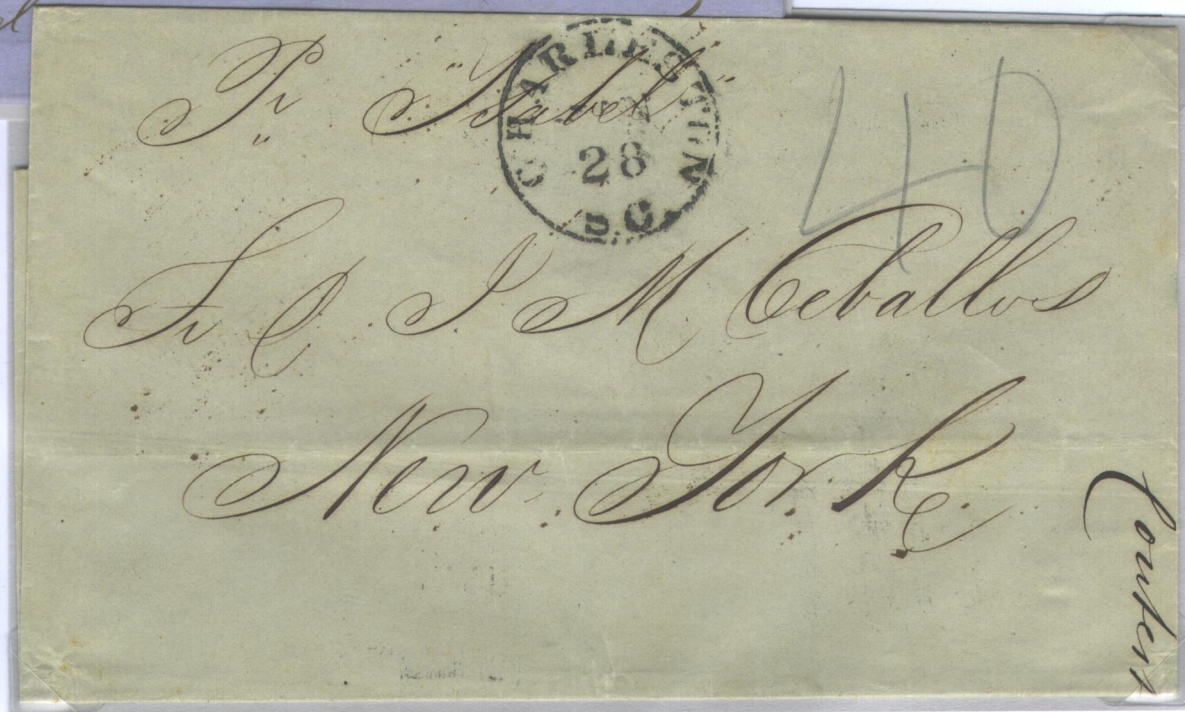 Pr "Isabel"
CHARLESTON
28
S.C.
40
Sr D. J M Ceballos
New York